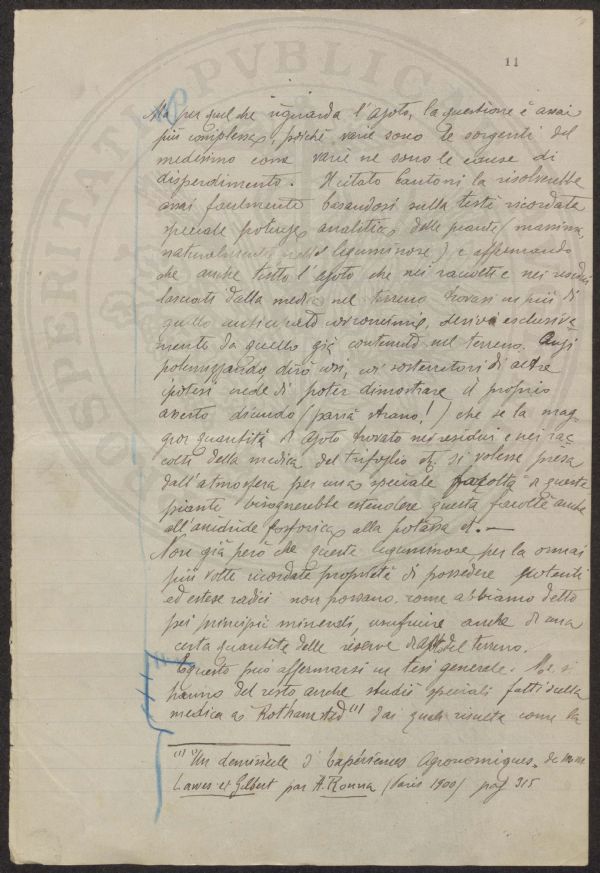 11
Ma per quel che riguarda l'Azoto, la questione è assai
più complessa, poichè varie sono le sorgenti del
medesimo come varie ne sono le cause di
disperdimento. Il citato Cantoni la risolverebbe
assai facilmente basandosi sulla testè ricordata
speciale potenza analitica delle piante (massime,
naturalmente, delle leguminose), e affermando
che anche tutto l'Azoto che nei raccolti e nei residui
lasciati dalla medica nel terreno trovasi in più di
quello, derivi esclusiva
mente da quello già contenuto nel terreno. Anzi
dirò così, coi sostenitori di altre
ipotesi crede di poter dimostrare il proprio
asserto dicendo (parrà strano!) che se la mag
gior quantità di Azoto trovato nei residui e nei rac
colti della medica, del trifoglio etc. si volesse presa
dall'atmosfera per una speciale facoltà di queste
piante bisognerebbe estendere questa facoltà anche
all'anidride fosforica, alla potassa et. —
Non già però che queste leguminose per la ormai
più volte ricordata proprietà di possedere potenti
ed estese radici non possano, come abbiamo detto
pei principii minerali, usufruire anche di una
certa quantità delle riserve del terreno.
E questo può affermarsi in tesi generale. Ma si
hanno del resto anche studii speciali fatti sulla
medica a Rothamsted (1) dai quali risulta come la
(1) Un demisiècle d'Expériences Agronomiques, de M.M.
Lawes et Gilbert par A. Ronna (Paris 1900) pag 315
OSPERITATI PVBLICAE